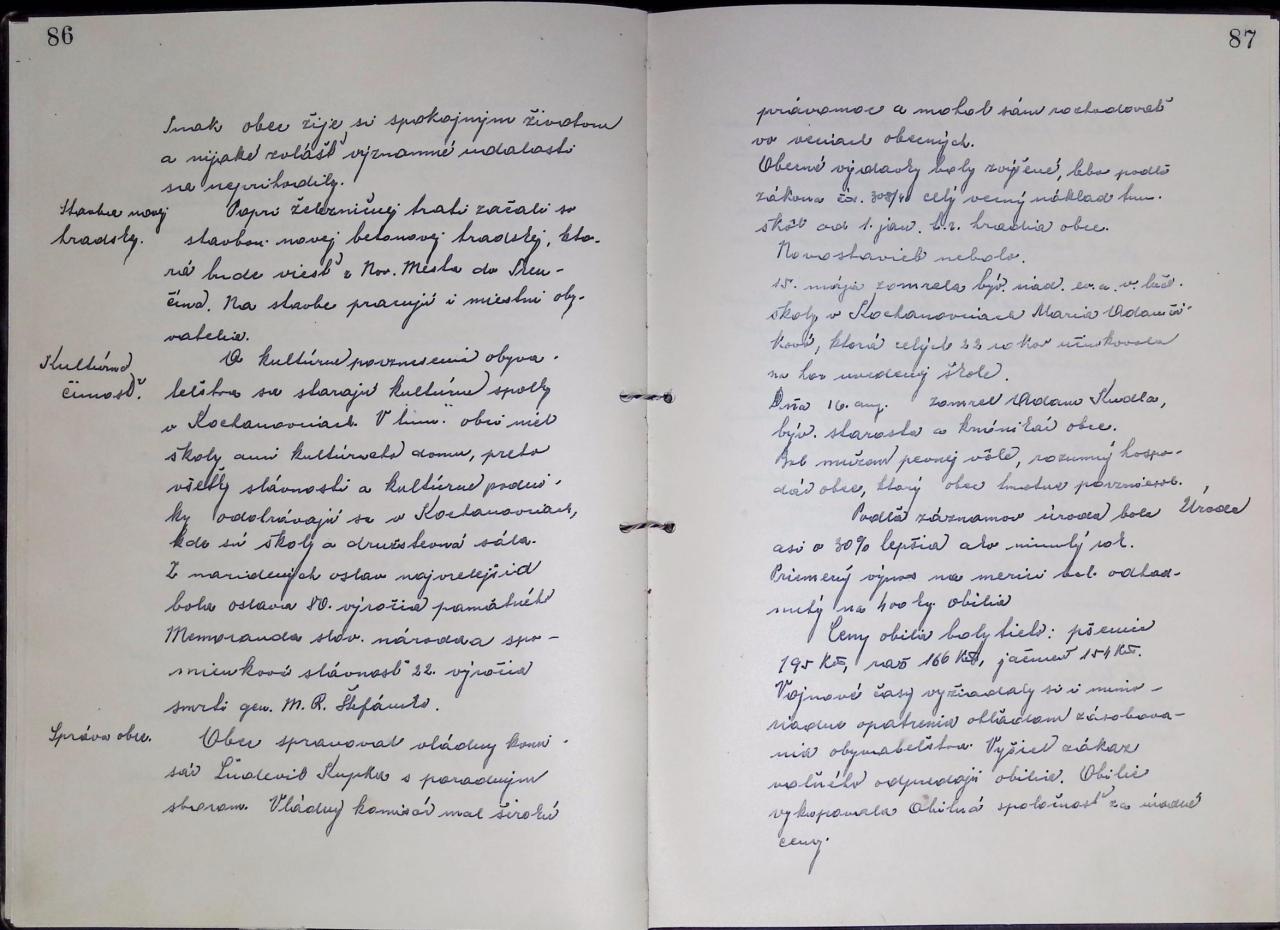 86
Inak obec žije si spokojným životom
a nijaké zvlášť významné udalosti
sa neprihodily.
Stavba novej
hradsky.
Popri železničnej trati začali so
stavbou novej betonovej hradskej, kto-
rá bude viesť z Nov. Mesta do Tren-
čína. Na stavbe pracujú i miestni oby-
vatelia.
Kultúrna
činnosť.
O kultúrne povznesenie obyva-
teľstva sa starajú kultúrne spolky
v Kochanovciach. V tun. obci niet
školy ani kultúrneho domu, preto
všetky slávnosti a kultúrne podni-
ky odohrávajú sa v Kochanovciach,
kde sú školy a družstevná sála.
Z nariadených osláv najvrelejšia
bola oslava 80. výročia pamätného
Memoranda slov. národa a spo-
mienková slávnosť 22. výročia
smrti gen. M. R. Štefánika.
Správa obce.
Obec spravoval vládny komi-
sár Ľudevit Kupka s poradným
sborom. Vládny komisár mal širokú
87
právomoc a mohol sám rozhodovať
vo veciach obecných.
Obecné výdavky boly zvýšené, lebo podľa
zákona čís. 308/40 celý vecný náklad tun.
škôl od 1. jan. t. r. hradia obce.
Novostavieb nebolo.
15. mája zomrela býv. riad. ev. a. v. ľud.
školy v Kochanovciach Maria Adamči-
ková, ktorá celých 22 rokov účinkovala
na hor uvedenej škole.
Dňa 16. aug. zomrel Adam Kudla,
býv. starosta a kronikár obce.
Bol mužom pevnej vôle, rozumný hospo-
dár obce, ktorý obec hmotne povzniesol.
Úroda
Podľa záznamov úroda bola
asi o 30% lepšia ako minulý rok.
Priemerný výnos na merici bol odhad-
nutý na 400 kg obilia
Ceny obilia boly tieto: pšenice
195 Ks, raž 166 Ks, jačmeň 154 Ks.
Vojnové časy vyžiadaly si i mimo-
riadne opatrenia ohľadom zásobova-
nia obyvateľstva. Vyšiel zákaz
voľného odpredaja obilia. Obilie
vykupovala Obilná spoločnosť za úradné
ceny.